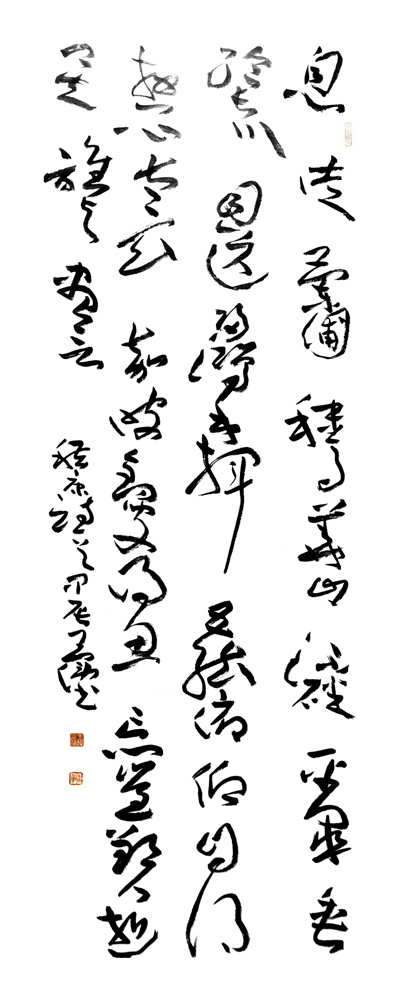 息徒蘭圃秣馬華山流磻平皋垂
綸長川目送歸鴻手揮五絃俯仰自得
游心太玄嘉彼釣叟得魚忘筌郢人逝
矣誰與盡言
嵇康詩 甲辰 書